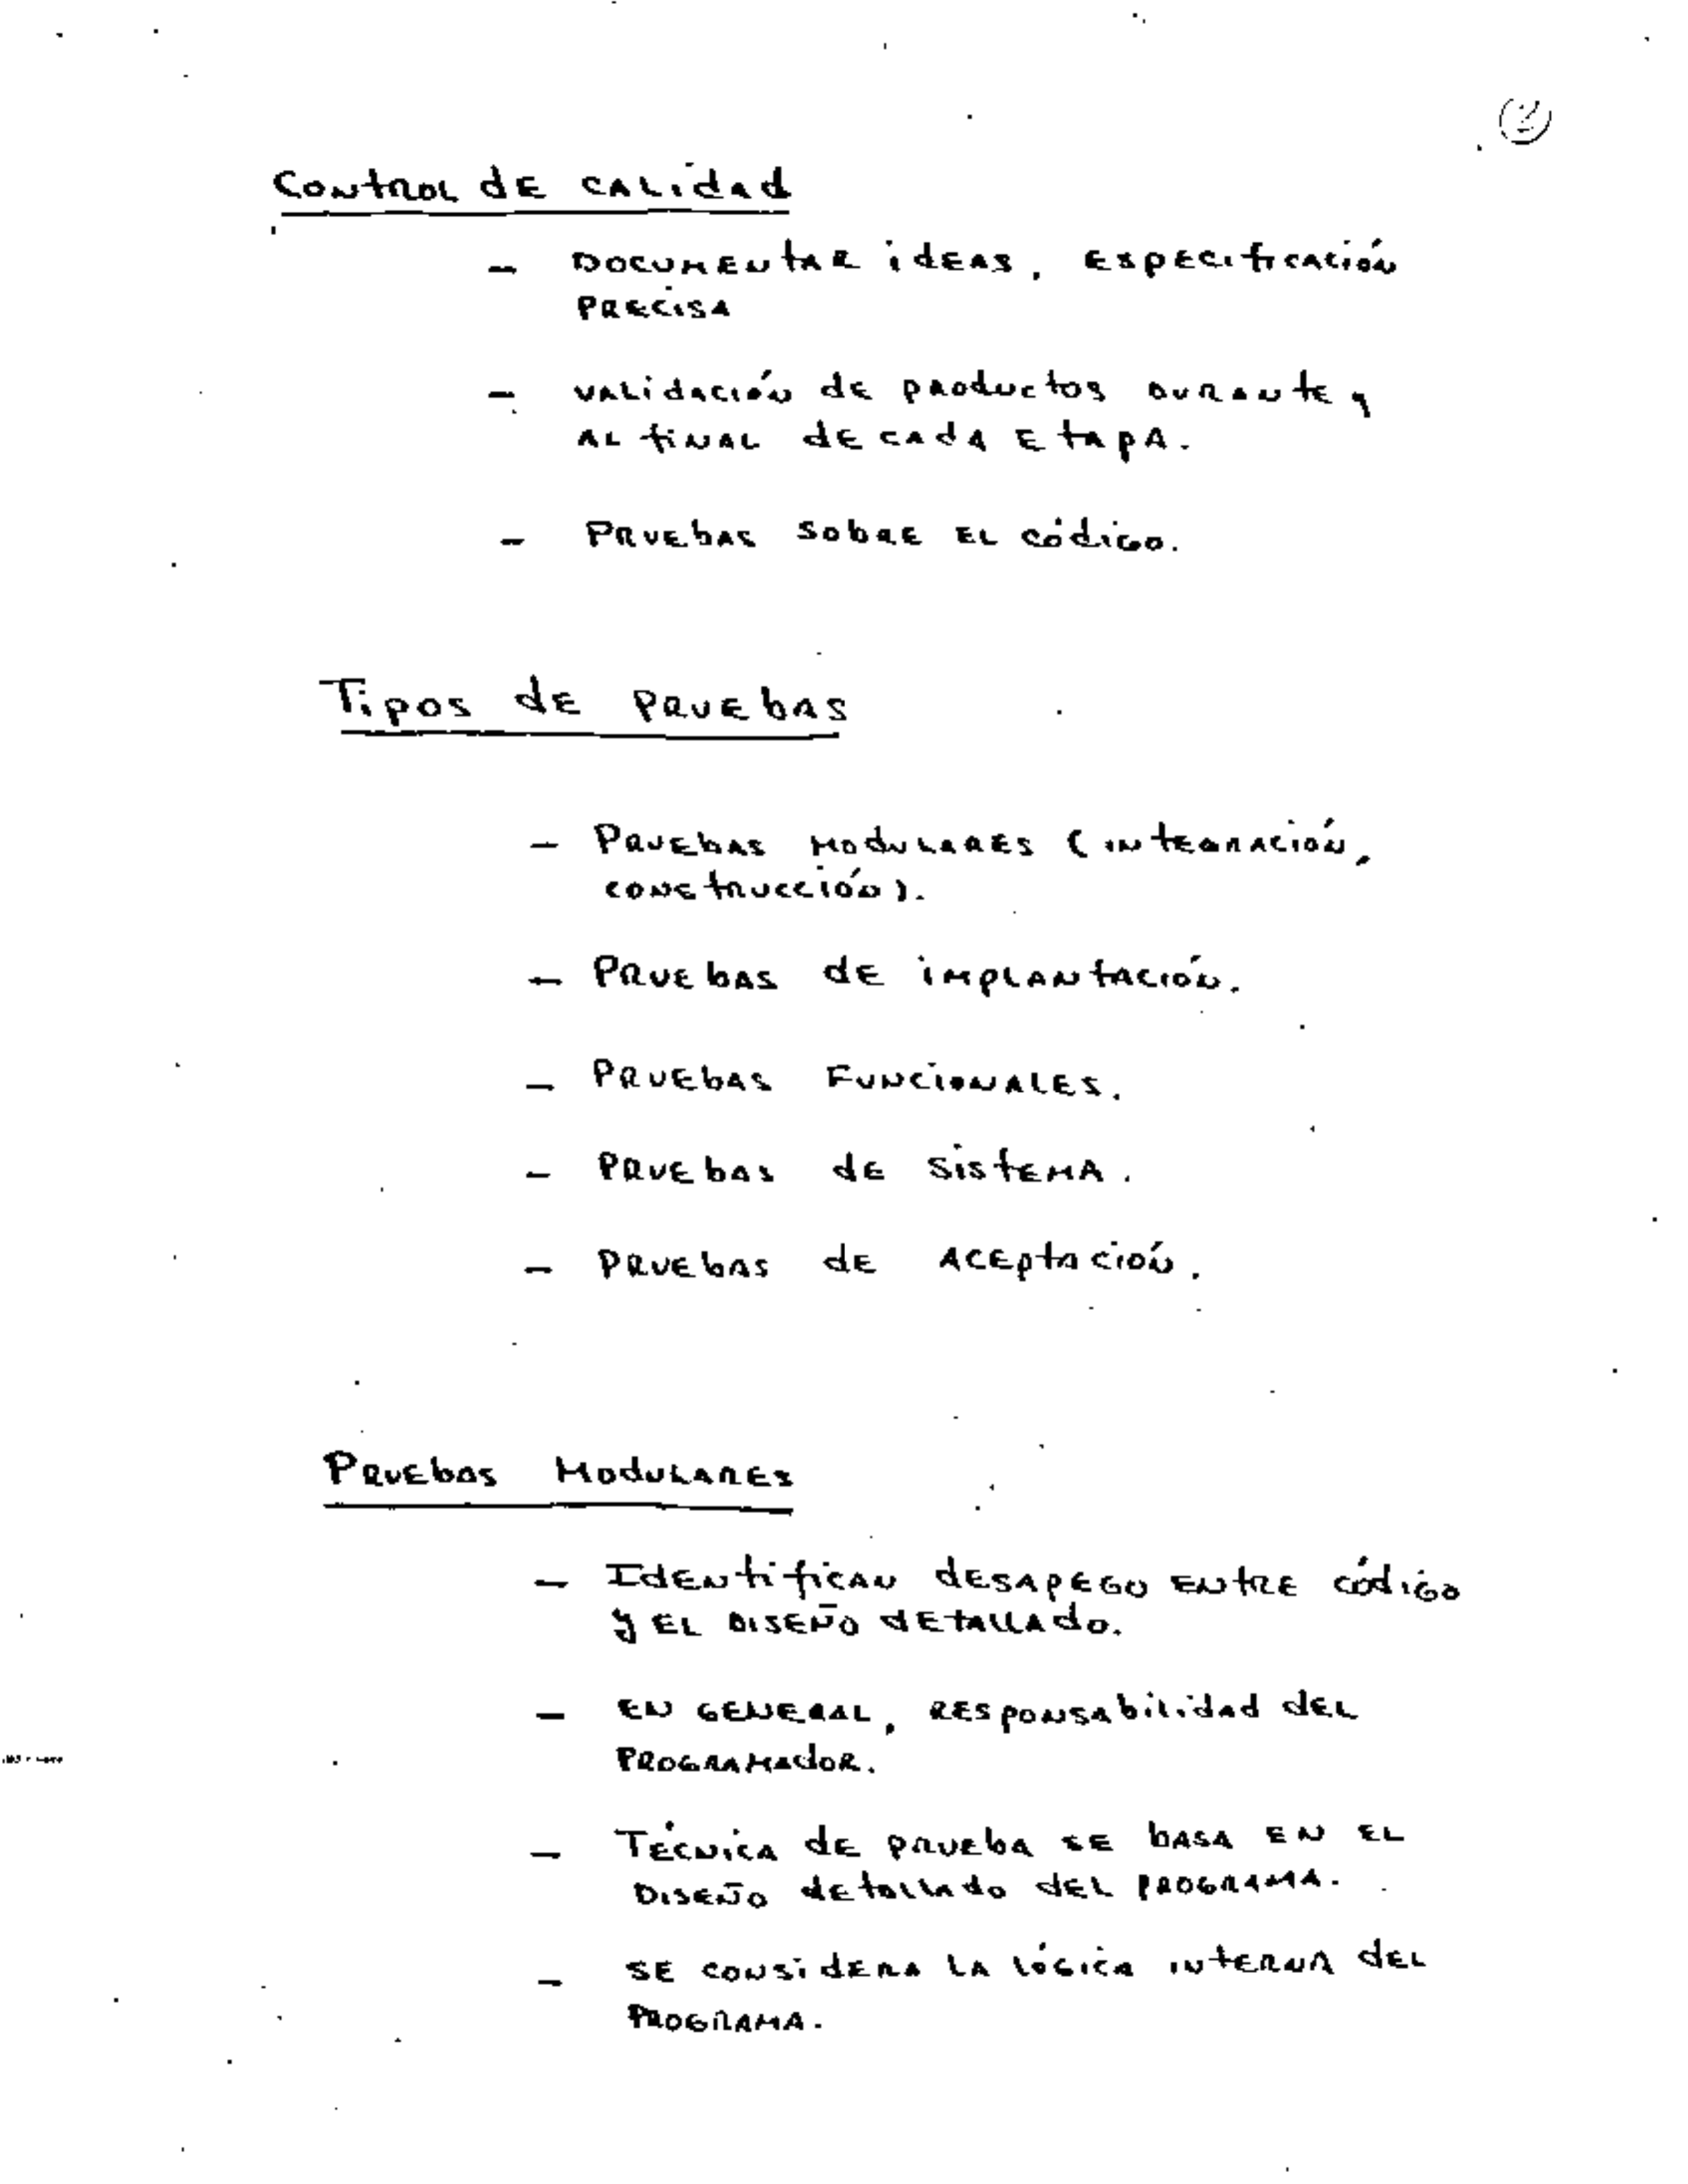 2
Control de calidad
- Documentar ideas, especificación
precisa
- Validación de productos durante y
al final de cada etapa.
- Pruebas sobre el código.
Tipos de pruebas
- Pruebas modulares (integración,
construcción).
- Pruebas de implantación.
- Pruebas Funcionales.
- Pruebas de sistema.
- Pruebas de aceptación.
Pruebas Modulares
- Identifican desapego entre código
y el diseño detallado.
- En general, responsabilidad del
programador.
- Técnica de prueba se basa en el
diseño detallado del programa.
- Se considera la lógica interna del
programa.